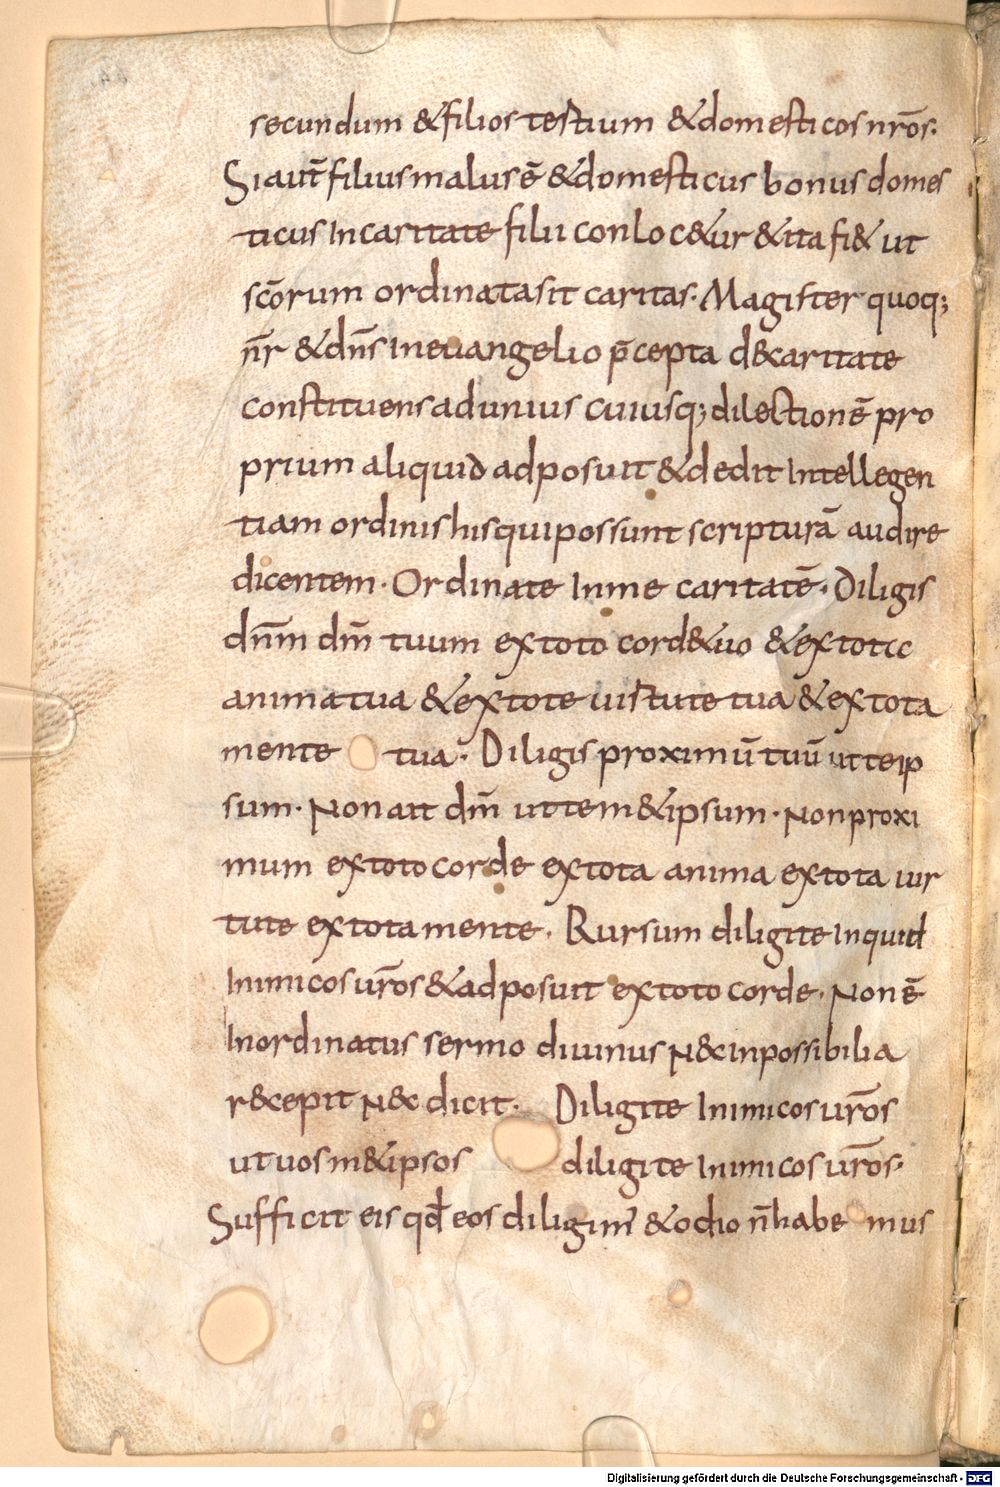 secundum &filios testium &domesticos nr̄os·
Siaut̄ filius malus ē &domesticus bonus domes
ticus Incaritate filii conloc&ur &ita fi& ut
sc̄orum ordinatasit caritas· Magister quoq;
nr̄ &dn̄s Ineuangelio p̄cepta d&caritate
constituens adunius cuiusq; dilectionē pro
prium aliquid adposuit &dedit Intellegen
tiam ordinis hisquipossunt scripturā audire
dicentem· Ordinate Inme caritatē· Diligis
dn̄m dm̄ tuum extoto cord&uo &extotic
animatua &extote uistute tua &extota
mente tua· Diligis proximū tuū utteip
sum· Non ait dm̄ uttem&ipsum· Nonproxi
mum extoto corde extota anima extota uir
tute extotamente· Rursum diligite Inquid
Inimicos ur̄os &adposuit extoto corde· Non ē
Inordinatus sermo diuinus N&Inpossibilia
r&cepit N&c dicit· Diligite Inimicos ur̄os
utuos m&ipsos diligite Inimicos ur̄os·
Sufficit eis qd̄ eos diligim' &odio n̄habe mus
Digitalisierung gefördert durch die Deutsche Forschungsgemeinschaft - DFG